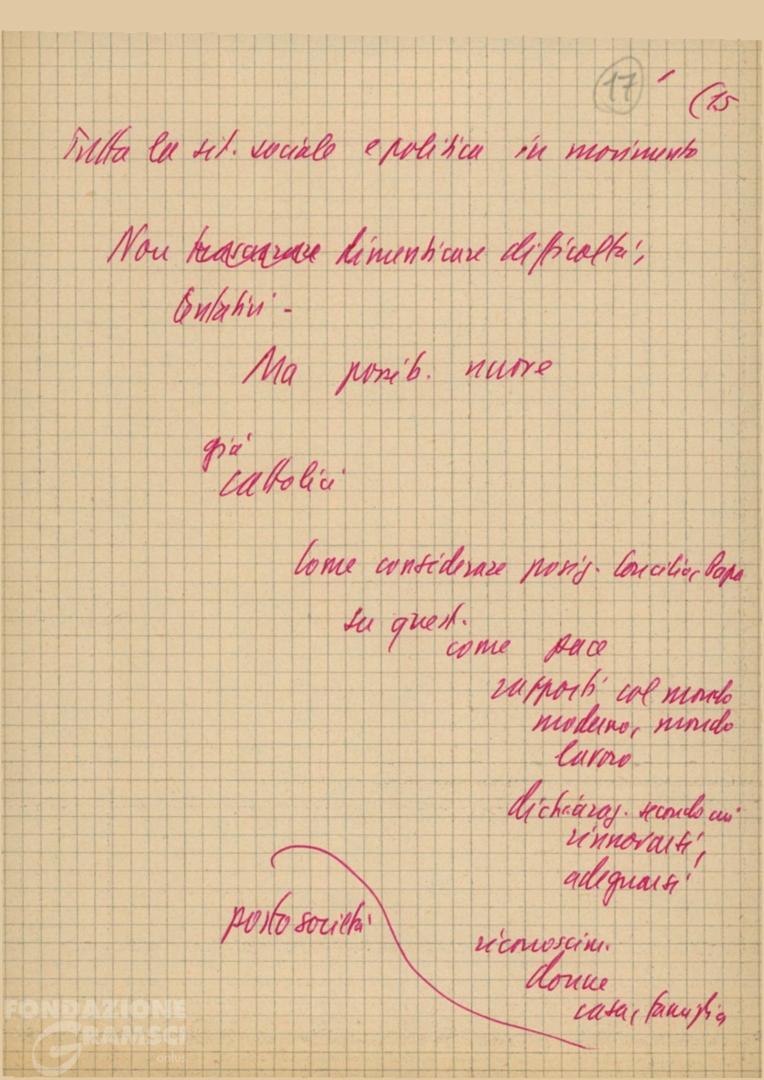 17 (15
Tutta la sit. sociale e politica in movimento
Non trascurare dimenticare difficoltà,
tentativi -
Ma possib. nuove
già
cattolici
Come considerare posiz. Concilio, Papa
su quest.
come pace
rapporti col mondo
moderno, mondo
lavoro
dichiaraz. secondo cui
rinnovarsi,
adeguarsi
posto società
riconoscim.
donne
casa, famiglia
FONDAZIONE
GRAMSCI
onlus